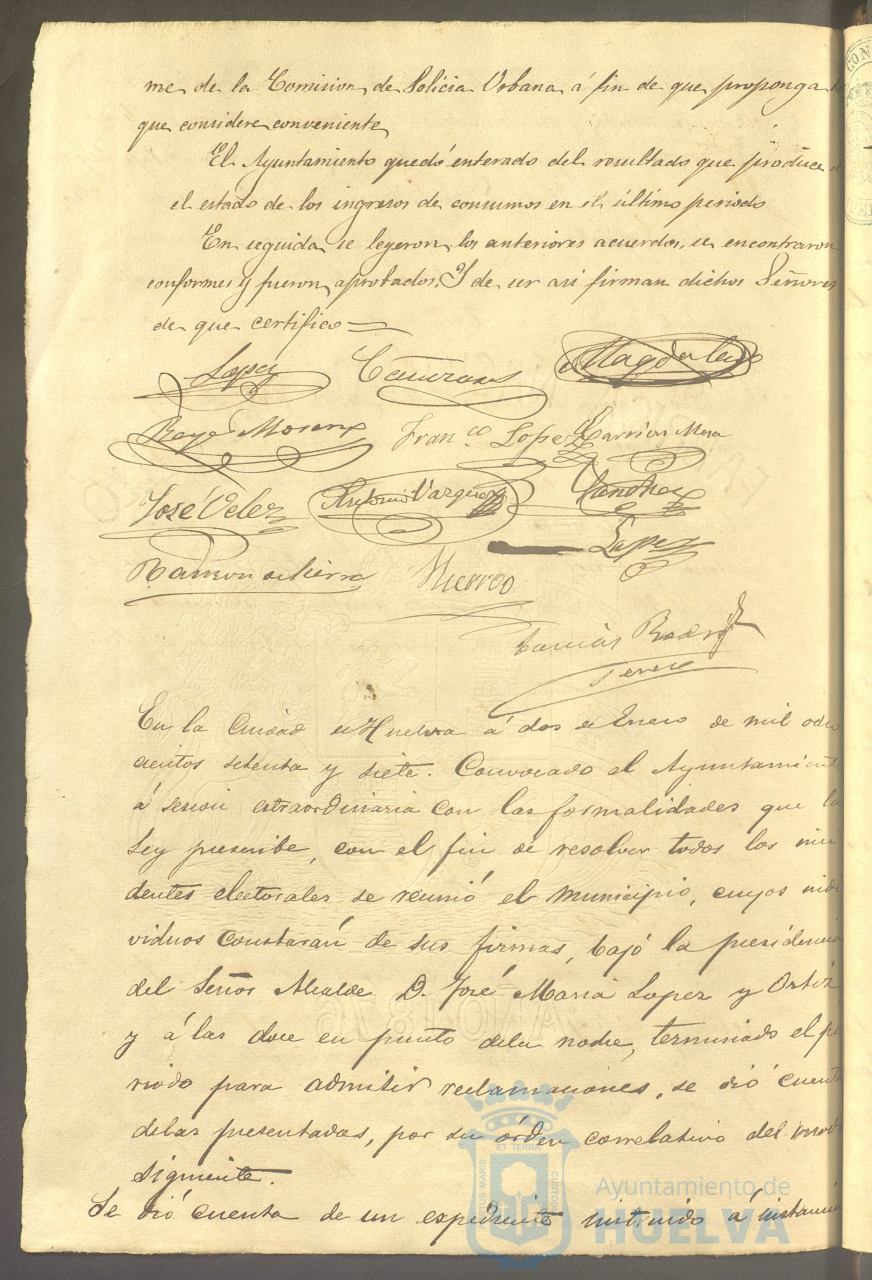 me de la Comision de Policia Urbana á fin de que proponga lo
que considere conveniente
El Ayuntamiento quedó enterado del resultado que produce
el estado de los ingresos de consumos en el último periodo
En seguida se leyeron los anteriores acuerdos, se encontraron
conformes y fueron aprobados. Y de ser asi firman dichos Señores
de que certifico
Lopez
Magdalena
Reyes Moreno Franco Lopez Carrion Mora
José Velez Antonio Vazquez Sanchez
Lopez
Ramon de Sierra Hierro
Tomás
Perez
En la Ciudad de Huelva á dos de Enero de mil ocho
cientos setenta y siete. Convocado el Ayuntamiento
á sesion extraordinaria con las formalidades que la
Ley prescribe, con el fin de resolver todos los inci
dentes electorales se reunió el Municipio, cuyos indi
viduos constarán de sus firmas, bajó la presidencia
del Señor Alcalde D. José Maria Lopez y Ortiz
y á las doce en punto dela noche, terminado el pe
riodo para admitir reclamaciones, se dió cuenta
delas presentadas, por su órden correlativo del modo
siguiente.
Se dió cuenta de un expediente instruido á instancia
Ayuntamiento de
HUELVA